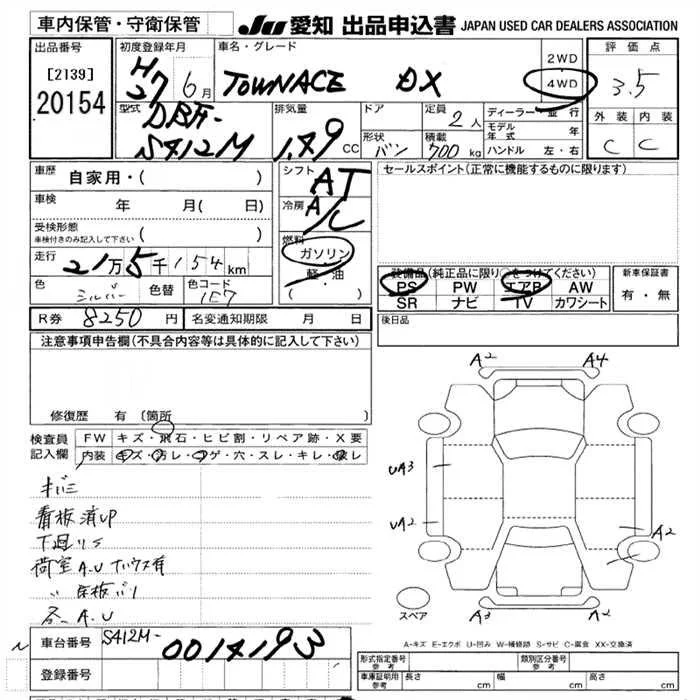 車内保管・守衛保管
JU 愛知 出品申込書 JAPAN USED CAR DEALERS ASSOCIATION
出品番号
[2139]
20154
初度登録年月
H27 6月
車名・グレード
TOWNACE DX
2WD
4WD
評価点
3.5
外装 内装
C C
型式
DBF-
S412M
排気量
1.49 cc
ドア
形状
バン
定員
2人
積載
700kg
ディーラー・並行
モデル年式 年
ハンドル 左・右
車歴
自家用・( )
車検 年 月( 日)
受検形態
車検付きのみ記入して下さい
( )
走行
21万5千154km
色
シルバー
色替
色コード
1E7
シフト
AT
冷房
A/C
燃料
ガソリン
軽・油
( )
セールスポイント(正常に機能するものに限ります)
装備品(純正品に限り○をつけてください)
PS PW エアB AW
SR ナビ TV カワシート
新車保証書
有・無
R券 8250円 名変通知期限 月 日
後日品
注意事項申告欄(不具合内容等は具体的に記入して下さい)
修復歴 有(箇所
検査員
記入欄
FW キズ・飛石・ヒビ割・リペア跡・X要
内装 キズ・汚レ・コゲ・穴・スレ・キレ・破レ
キバミ
看板済UP
下廻りS
荷室A.U
A.U
A2 A4
UA3
UA2 A2
A3 A2
スペア
A-キズ E-エクボ U-凹み W-補修跡 S-サビ C-腐食 XX-交換済
車台番号 S412M-0014193
登録番号
形式指定番号
参考
類別区分番号
参考
車庫証明用
参考
長さ cm 幅 cm 高さ cm